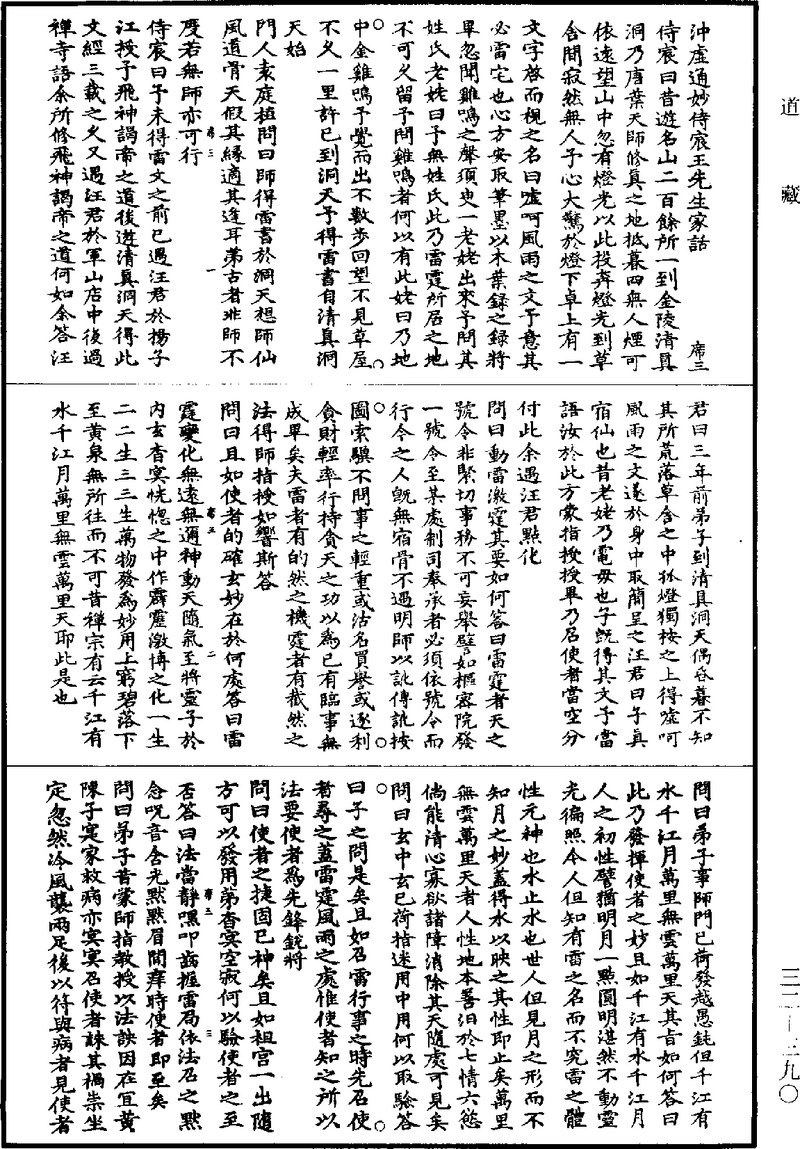 道藏
三二—三九〇
沖虛通妙侍宸王先生家話
席三
侍宸曰昔遊名山二百餘所一到金陵清真
洞乃唐葉天師修真之地抵暮四無人煙可
依遠望山中忽有燈光以此投奔燈光到草
舍間寂然無人子心大驚於燈下卓上有一
文字啓而視之名曰噓呵風雨之文予意其
必雷宅也心方安取筆墨以木葉錄之錄將
畢忽聞雞鳴之聲須臾一老姥出來予問其
姓氏老姥曰予無姓氏此乃雷霆所居之地
不可久留予問雞鳴者何以有此姥曰乃地
中金雞鳴予覺而出不數步回望不見草屋
不久一里許已到洞天予得雷書自清真洞
天始
門人袁庭植問曰師得雷書於洞天想師仙
風道骨天假其緣適其逢耳弟古者非師不
度若無師亦可行
侍宸曰予未得雷文之前已遇汪君於揚子
江授予飛神謁帝之道後遊清真洞天得此
文經三載之久又遇汪君於軍山店中後過
禪寺語余所修飛神謁帝之道何如余答汪
君曰三年前弟子到清真洞天偶昏暮不知
其所荒落草舍之中孤燈獨桉之上得噓呵
風雨之文遂於身中取簡呈之汪君曰子真
宿仙也昔老姥乃電母也子旣得其文子當
語汝於此方象指授授畢乃召使者當空分
付此余遇汪君點化
問曰動雷激霆其要如何答曰雷霆者天之
號令非緊切事務不可妄舉譬如樞密院發
一號令至某處制司奉承者必須依號令而
行令之人旣無宿骨不遇明師以訛傳訛按
圖索驥不問事之輕重或沽名買譽或逐利
貪財輕率行持貪天之功以爲已有臨事無
成畢矣夫雷者有的然之機霆者有截然之
法得師指授如響斯答
問曰且如使者的確玄妙在於何處答曰雷
霆變化無遠無邇神動天隨氣至將靈子於
內玄杳冥恍惚之中作霹靂激博之化一生
二二生三三生萬物發爲妙用上窮碧落下
至黃泉無所往而不可昔禪宗有云千江有
水千江月萬里無雲萬里天耶此是也
問曰弟子事師門已荷發越愚鈍但千江有
水千江月萬里無雲萬里天其旨如何答曰
此乃發揮使者之妙且如千江有水千江月
人之初性譬猶明月一點圓明湛然不動靈
光徧照今人但知有雷之名而不究雷之體
性元神也水止水也世人但見月之形而不
知月之妙蓋得水以映之其性即止矣萬里
無雲萬里天者人性地本善汩於七情六慾
倘能清心寡欲諸障消除其天隨處可見矣
問曰玄中玄已荷指迷用中用何以取驗答
曰子之問是矣且如召雷行事之時先召使
者尋之蓋雷霆風雨之處惟使者知之所以
法要使者爲先鋒銳將
問曰使者之捷固已神矣且如祖宫一出隨
方可以發用弟杳冥空寂何以驗使者之至
否答曰法當靜嘿叩齒握雷局依法召之默
念呪音含光默默眉間癢時使者即至矣
問曰弟子昔蒙師指教授以法訣因在宜黃
陳子寔家救病亦寞寞召使者誅其禍祟坐
定忽然冷風襲兩足後以符與病者見使者
席三 一
席三 二
席三 三